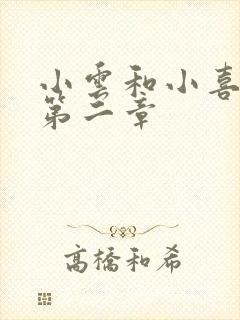 小雲和小喜
第二章
高橋和希